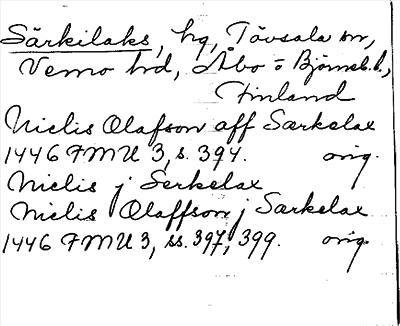 Särkilaks, hg, Tövsala sn,
Vemo hd, Åbo o Björneb. l.,
Finland
Nielis Olafson aff Særkelax
1446 FMU 3, s. 394. orig.
Nielis j Serkelax
Nielis Olaffson j Særkelax
1446 FMU 3, ss. 397, 399. orig.